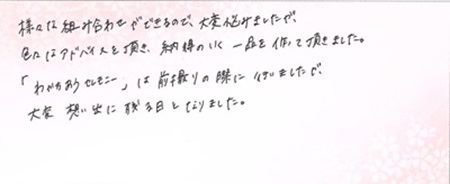 様々な組み合わせができるので、大変悩みましたが、
色々なアドバイスを頂き、納得のいく一品を作って頂きました。
「わかちあうセレモニー」は前撮りの際に行いましたが、
大変想い出に残る日となりました。